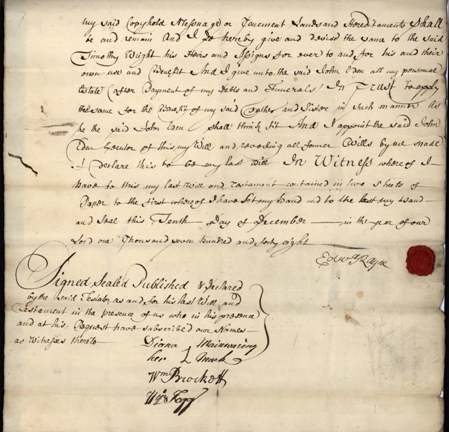 my said Copyhold Messuage or Tenement Lands and Hereditaments shall
be and remain And I do hereby give and devise the same to the said
Timothy Wight his Heirs and Assigns for ever to and for his and their
own use and Benefit And I give unto the said John all my personal
Estate (after Payment of my Debts and Funerals) In Trust to apply
the same for the Benefit of my said Brother and Sister in such manner as
he the said John shall think fit And I appoint the said John
Executor of this my Will and revoking all former Wills by me made
I declare this to be my last Will In Witness whereof I
have to this my last Will and Testament contained in two Sheets of
Paper to the first whereof I have set my hand and to the last my Hand
and Seal this Tenth Day of December in the year of our
Lord one Thousand seven hundred and forty eight
Signed Sealed Published & Declared
by the said Testator as and for his last Will and
Testament in the presence of us who in his presence
and at his Request have subscribed our Names
as Witnesses thereto
Diana Mainwaring
her mark
Wm Brockett
Wm